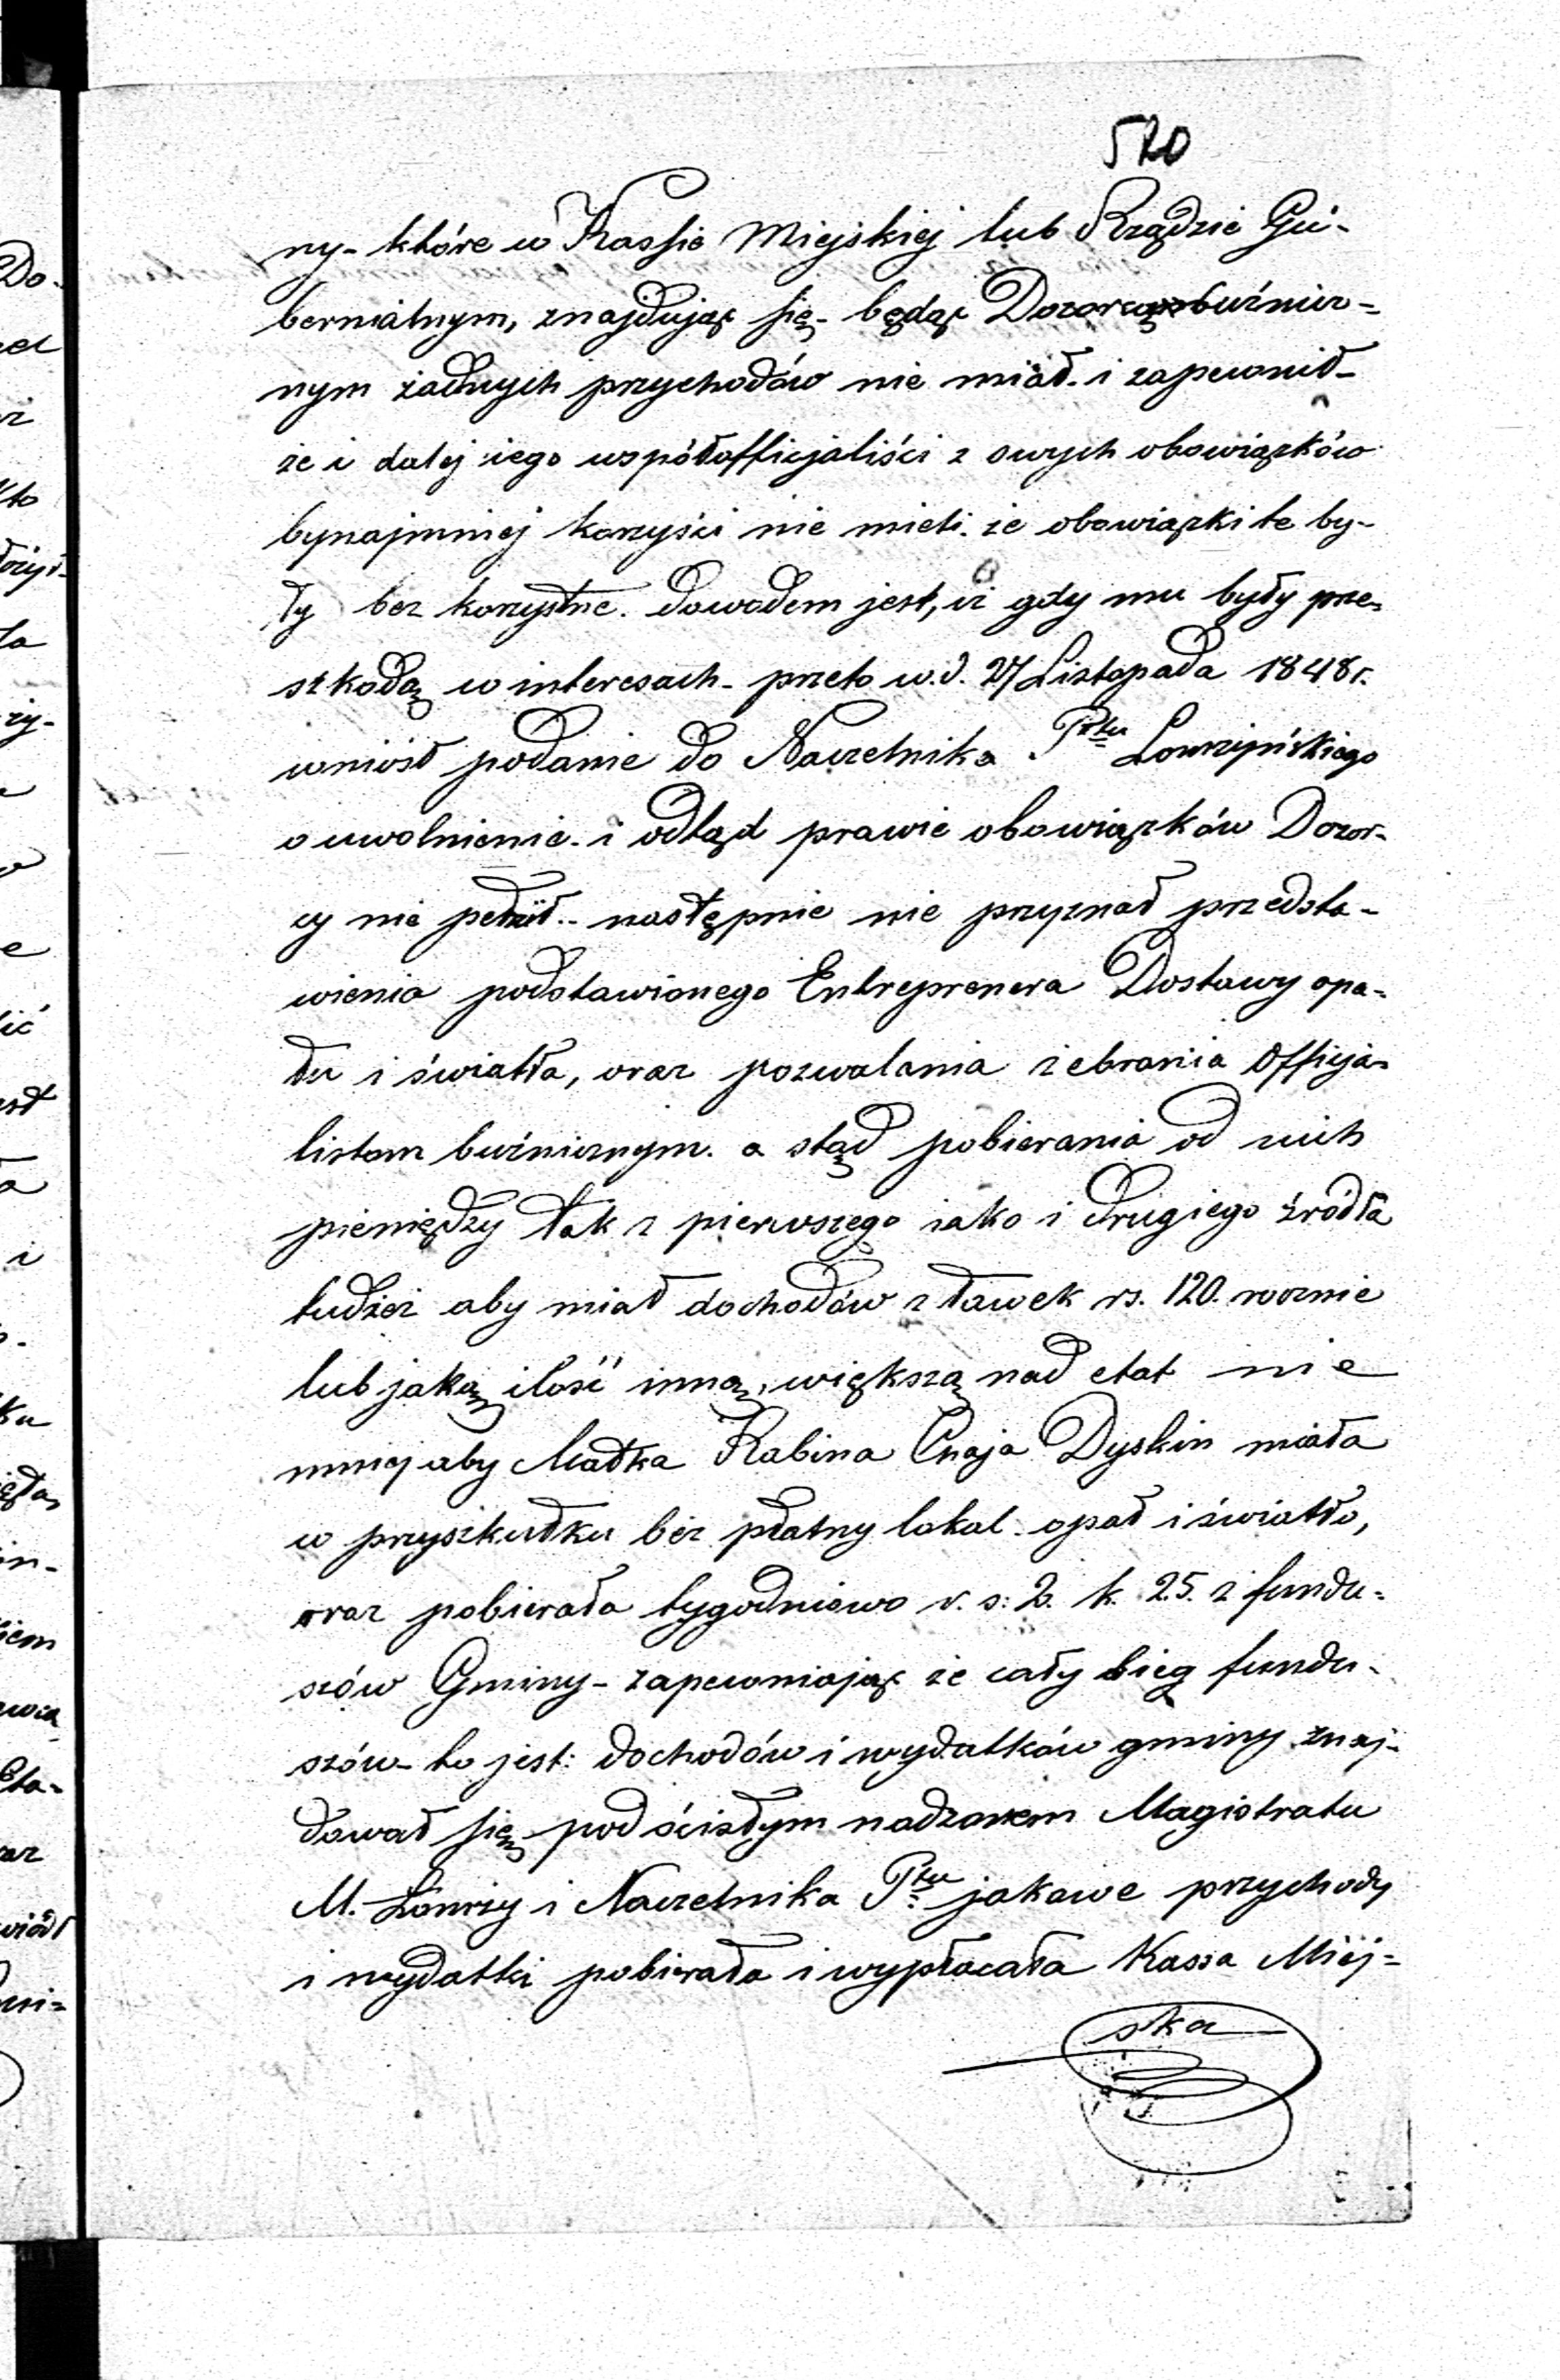 520
ny- które w Kassie Miejskiej lub Rządzie Gu-
bernialnym, znajdując się- będąc Dozorcą buźnicz-
nym żadnych przychodów nie miał. i zapewnił-
że i dalej iego współofficjaliści z swych obowiązków
bynajmniej korzyści nie mieli. że obowiązki te by-
ły bez korzystne. dowodem jest, iż gdy mu były prze-
szkodą w interesach- przeto w.d. 27 Listopada 1848 r.
wniósł podanie do Naczelnika Ptu Łomżyńskiego
o uwolnienie. i odtąd prawie obowiązków Dozor-
cy nie pełnił.- następnie nie przyznał przedsta-
wienia podstawionego Entreprenera Dostawy opa-
łu i światła, oraz pozwalania żebrania Officja-
listom buźnicznym. a stąd pobierania od nich
pieniędzy tak z pierwszego iako i drugiego źródła
tudzież aby miał dochodów z ławek rs. 120. rocznie
lub jaką ilość inną, większą nad etat nie
mniej aby Matka Rabina Chaja Dyskin miała
w przyszkułku bez płatny lokal. opał i światło,
oraz pobierała tygodniowo r. s: 2. k. 25. z fundu-
szów Gminy- zapewniając że cały bieg fundu-
szów- to jest: dochodów i wydatków gminy znaj-
dował się pod ścisłym nadzorem Magistratu
M. Łomży i Naczelnika Ptu jakowe przychody
i wydatki pobierała i wypłacała Kassa Miej-
ska